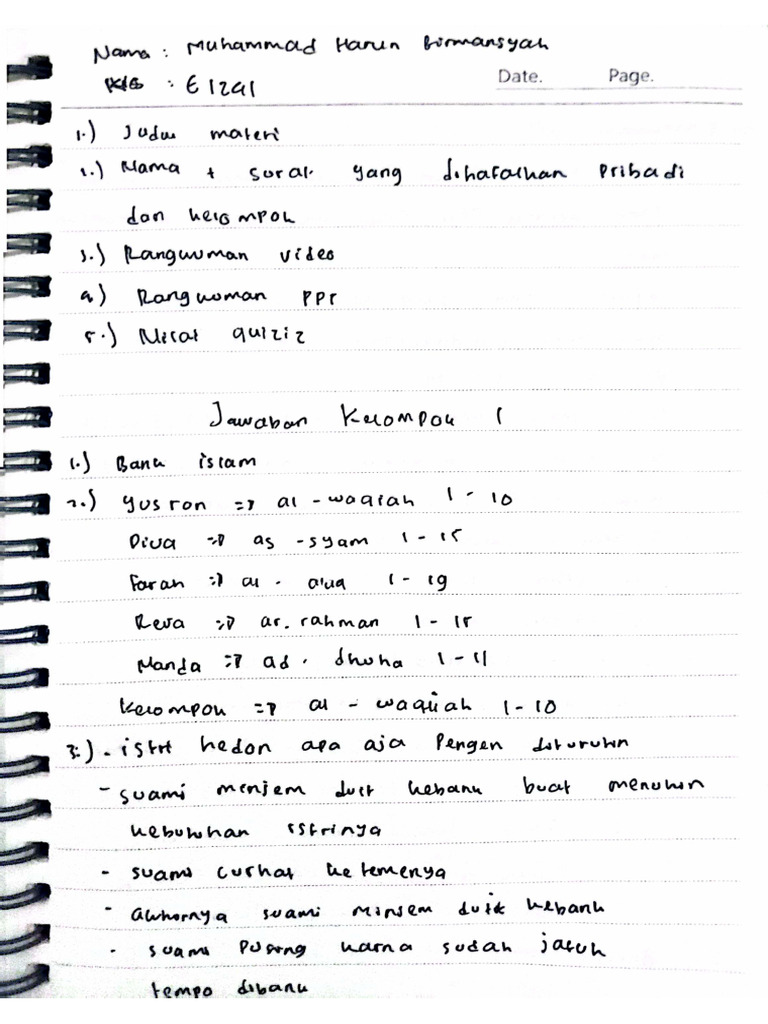 Nama : Muhammad Harun Birmansyah
Kls : E1291
Date. Page.
1.) Judul materi
2.) Nama + surat yang dihafalkan pribadi
dan kelompok
3.) Rangkuman video
4) Rangkuman PPT
5.) Nilai quiziz
Jawaban Kelompok 1
1.) Bank islam
2.) Yusron => al - waqiah 1 - 10
Diva => as - syam 1 - 15
Farah => al - alua 1 - 19
Reva => ar. rahman 1 - 15
Manda => ad - dhuha 1 - 11
Kelompok => al - waqiiah 1 - 10
3.) - istri hedon apa aja pengen diturutin
- suami minjem duit kebank buat menuhin
kebutuhan istrinya
- suami curhat ke temenya
- akhornya suami minjem duit kebank
- suami pusing karna sudah jatuh
tempo dibank